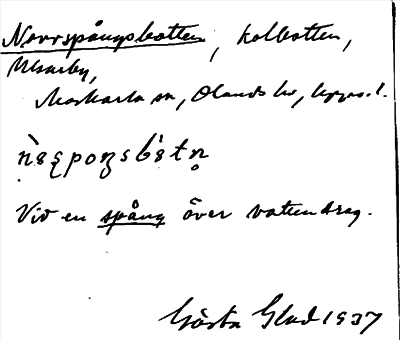 Norrspångsbotten, kolbotten,
Ulvarby,
Morkarla sn, Olands hd, Uppss. l.
Vid en spång över vattendrag.
Gösta Glad 1937